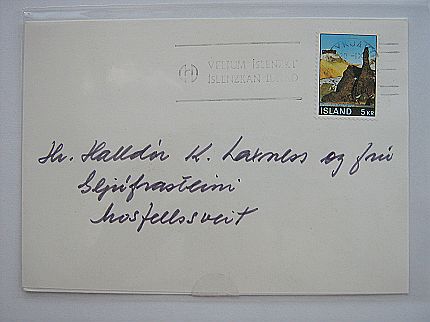 VELJUM ÍSLENZKT
ÍSLENZKAN IÐNAÐ
ÍSLAND 5 KR
Hr. Halldór K. Laxness og frú
Gljúfrasteini
Mosfellssveit